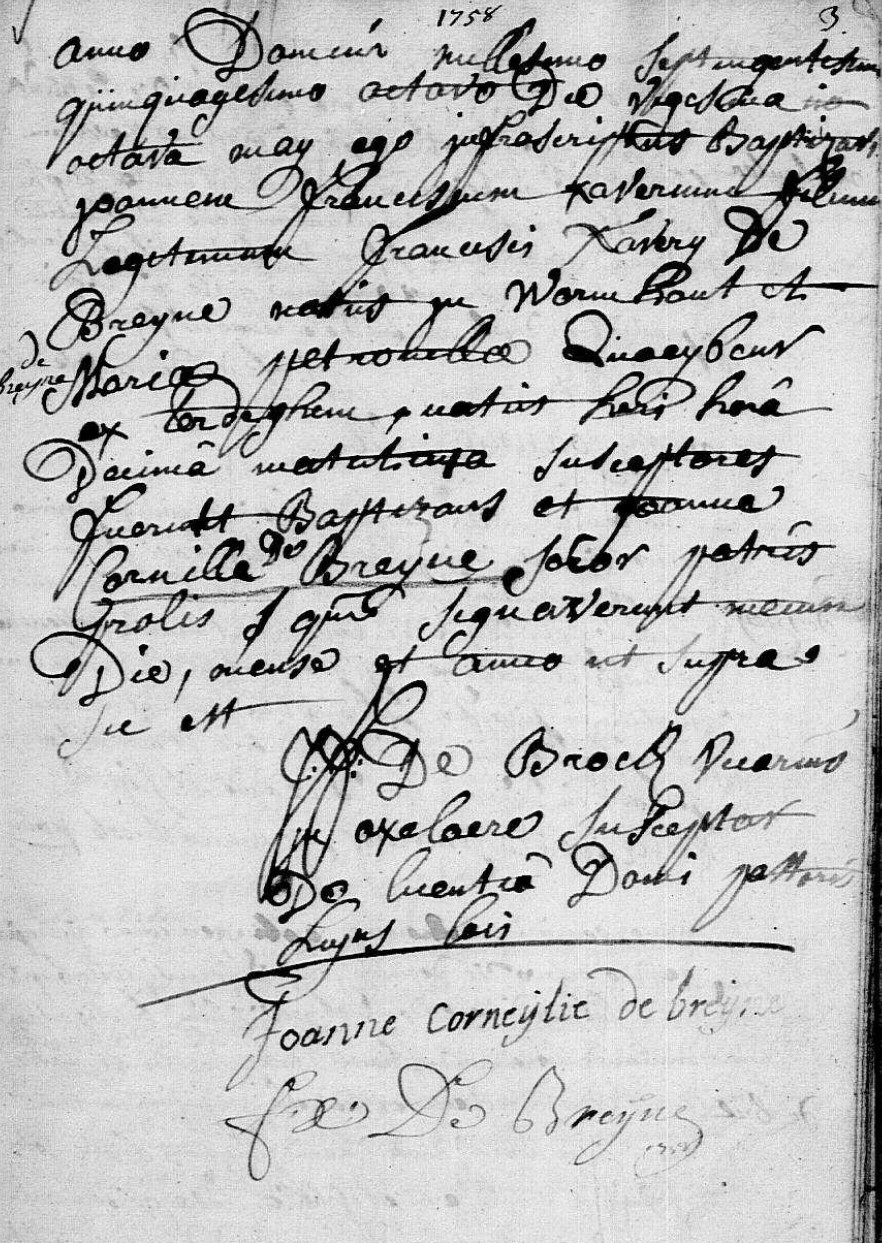 1758 3
anno Domini millesimo septingentesimo
quinquagesimo octavo Die vigesima
octava may ego infrascriptus Baptizavi
joannem franciscum xaverium filium
Legitimum francisci Xavery De
Breyne natus in Wormhout et
de
breyne
Mariæ petronillæ Quaeybeur
ex terdeghem, natus heri horâ
Decimâ matutina susceptores
fuerunt Baptizans et joanne
Cornille De Breyne soror patris
prolis qui signaverunt mecum
Die, mense et anno ut supra
sic est
J: F: De Brock vicarius
in oxelaere susceptor
De licentiâ Domi pastoris
hujus loci
Joanne Corneylie de breyne
fx De Breyne
1758